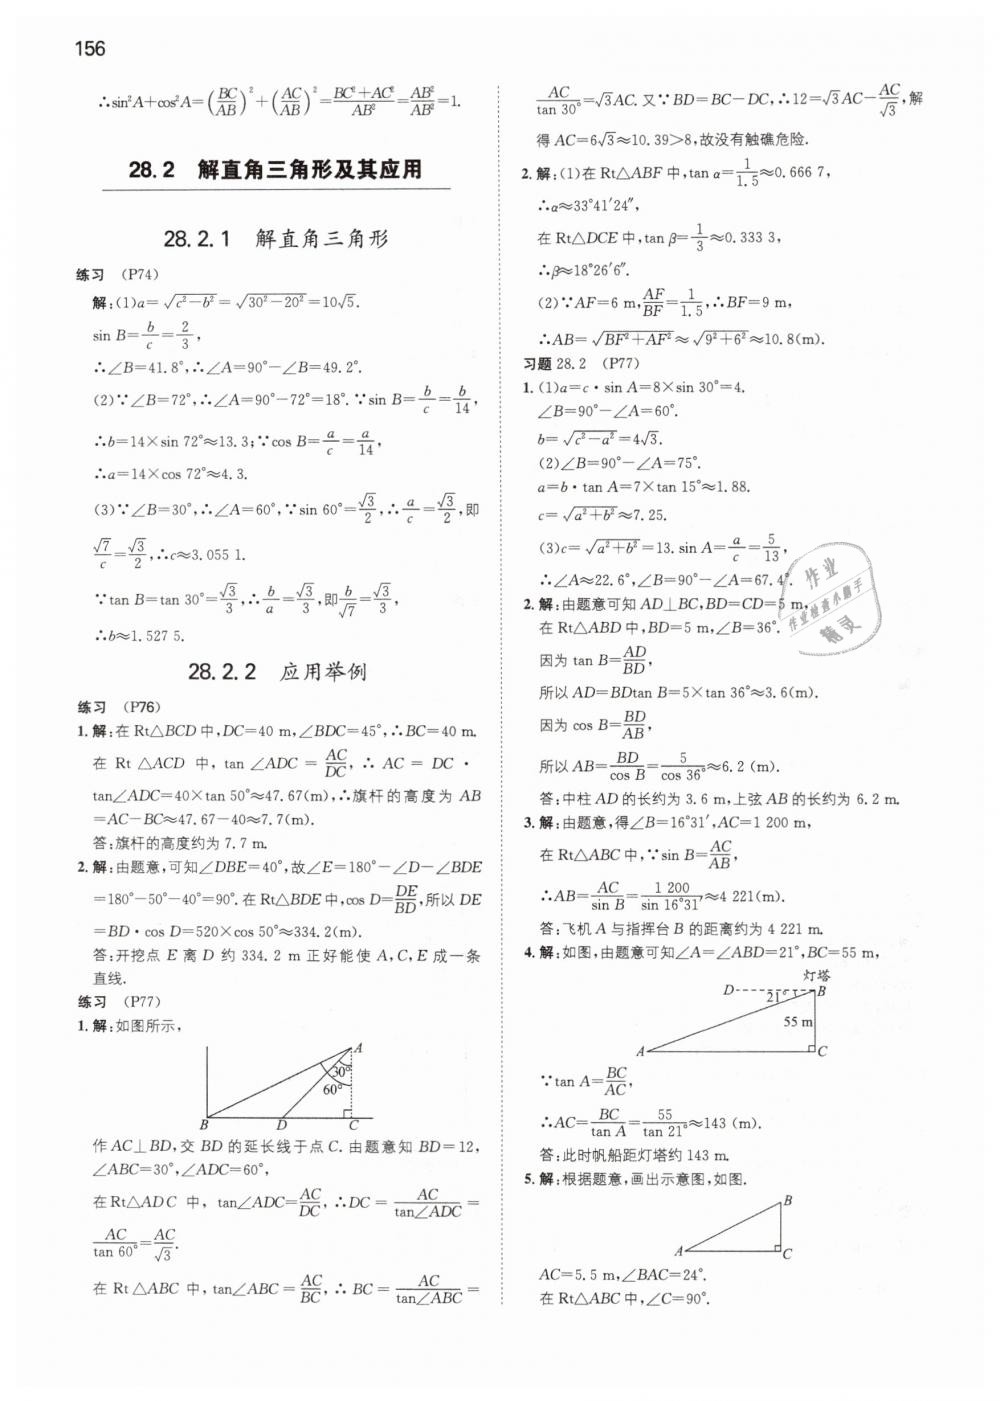 156
∴sin²A+cos²A=(BC/AB)²+(AC/AB)²=(BC²+AC²)/AB²=AB²/AB²=1.
28.2 解直角三角形及其应用
28.2.1 解直角三角形
练习 (P74)
解:(1)a=√(c²−b²)=√(30²−20²)=10√5.
sin B=b/c=2/3,
∴∠B=41.8°,∴∠A=90°−∠B=49.2°.
(2)∵∠B=72°,∴∠A=90°−72°=18°.∵sin B=b/c=b/14,
∴b=14×sin 72°≈13.3;∵cos B=a/c=a/14,
∴a=14×cos 72°≈4.3.
(3)∵∠B=30°,∴∠A=60°,∵sin 60°=√3/2,∴a/c=√3/2,即
√7/c=√3/2,∴c≈3.055 1.
∵tan B=tan 30°=√3/3,∴b/a=√3/3,即b/√7=√3/3,
∴b≈1.527 5.
28.2.2 应用举例
练习 (P76)
1.解:在Rt△BCD中,DC=40 m,∠BDC=45°,∴BC=40 m.
在 Rt △ACD 中, tan ∠ADC = AC/DC, ∴ AC = DC ·
tan∠ADC=40×tan 50°≈47.67(m),∴旗杆的高度为 AB
=AC−BC≈47.67−40≈7.7(m).
答:旗杆的高度约为 7.7 m.
2.解:由题意,可知∠DBE=40°,故∠E=180°−∠D−∠BDE
=180°−50°−40°=90°.在Rt△BDE中,cos D=DE/BD,所以 DE
=BD·cos D=520×cos 50°≈334.2(m).
答:开挖点 E 离 D 约 334.2 m 正好能使 A,C,E 成一条
直线.
练习 (P77)
1.解:如图所示,
A
30°
60°
B D C
作 AC⊥BD,交 BD 的延长线于点 C.由题意知 BD=12,
∠ABC=30°,∠ADC=60°,
在Rt△ADC 中, tan∠ADC=AC/DC,∴DC = AC/tan∠ADC =
AC/tan 60°=AC/√3.
在 Rt △ABC 中, tan∠ABC = AC/BC, ∴ BC = AC/tan∠ABC =
AC/tan 30°=√3AC.又∵BD=BC−DC,∴12=√3AC−AC/√3,解
得 AC=6√3≈10.39>8,故没有触礁危险.
2.解:(1)在Rt△ABF中,tan α=1/1.5≈0.666 7,
∴α≈33°41′24″,
在 Rt△DCE 中,tan β=1/3≈0.333 3,
∴β≈18°26′6″.
(2)∵AF=6 m,AF/BF=1/1.5,∴BF=9 m,
∴AB=√(BF²+AF²)≈√(9²+6²)≈10.8(m).
习题 28.2 (P77)
1.(1)a=c·sin A=8×sin 30°=4.
∠B=90°−∠A=60°.
b=√(c²−a²)=4√3.
(2)∠B=90°−∠A=75°.
a=b·tan A=7×tan 15°≈1.88.
c=√(a²+b²)≈7.25.
(3)c=√(a²+b²)=13.sin A=a/c=5/13,
∴∠A≈22.6°,∠B=90°−∠A=67.4°.
2.解:由题意可知 AD⊥BC,BD=CD=5 m,
在 Rt△ABD 中,BD=5 m,∠B=36°.
因为 tan B=AD/BD,
所以 AD=BDtan B=5×tan 36°≈3.6(m).
因为 cos B=BD/AB,
所以 AB=BD/cos B=5/cos 36°≈6.2 (m).
答:中柱 AD 的长约为 3.6 m,上弦 AB 的长约为 6.2 m.
3.解:由题意,得∠B=16°31′,AC=1 200 m,
在 Rt△ABC 中,∵sin B=AC/AB,
∴AB=AC/sin B=1 200/sin 16°31′≈4 221(m).
答:飞机 A 与指挥台 B 的距离约为 4 221 m.
4.解:如图,由题意可知∠A=∠ABD=21°,BC=55 m,
灯塔
D B
21°
55 m
A C
∵tan A=BC/AC,
∴AC=BC/tan A=55/tan 21°≈143 (m).
答:此时帆船距灯塔约 143 m.
5.解:根据题意,画出示意图,如图.
B
A C
AC=5.5 m,∠BAC=24°.
在 Rt△ABC 中,∠C=90°.
作业
作业检查小助手
精灵